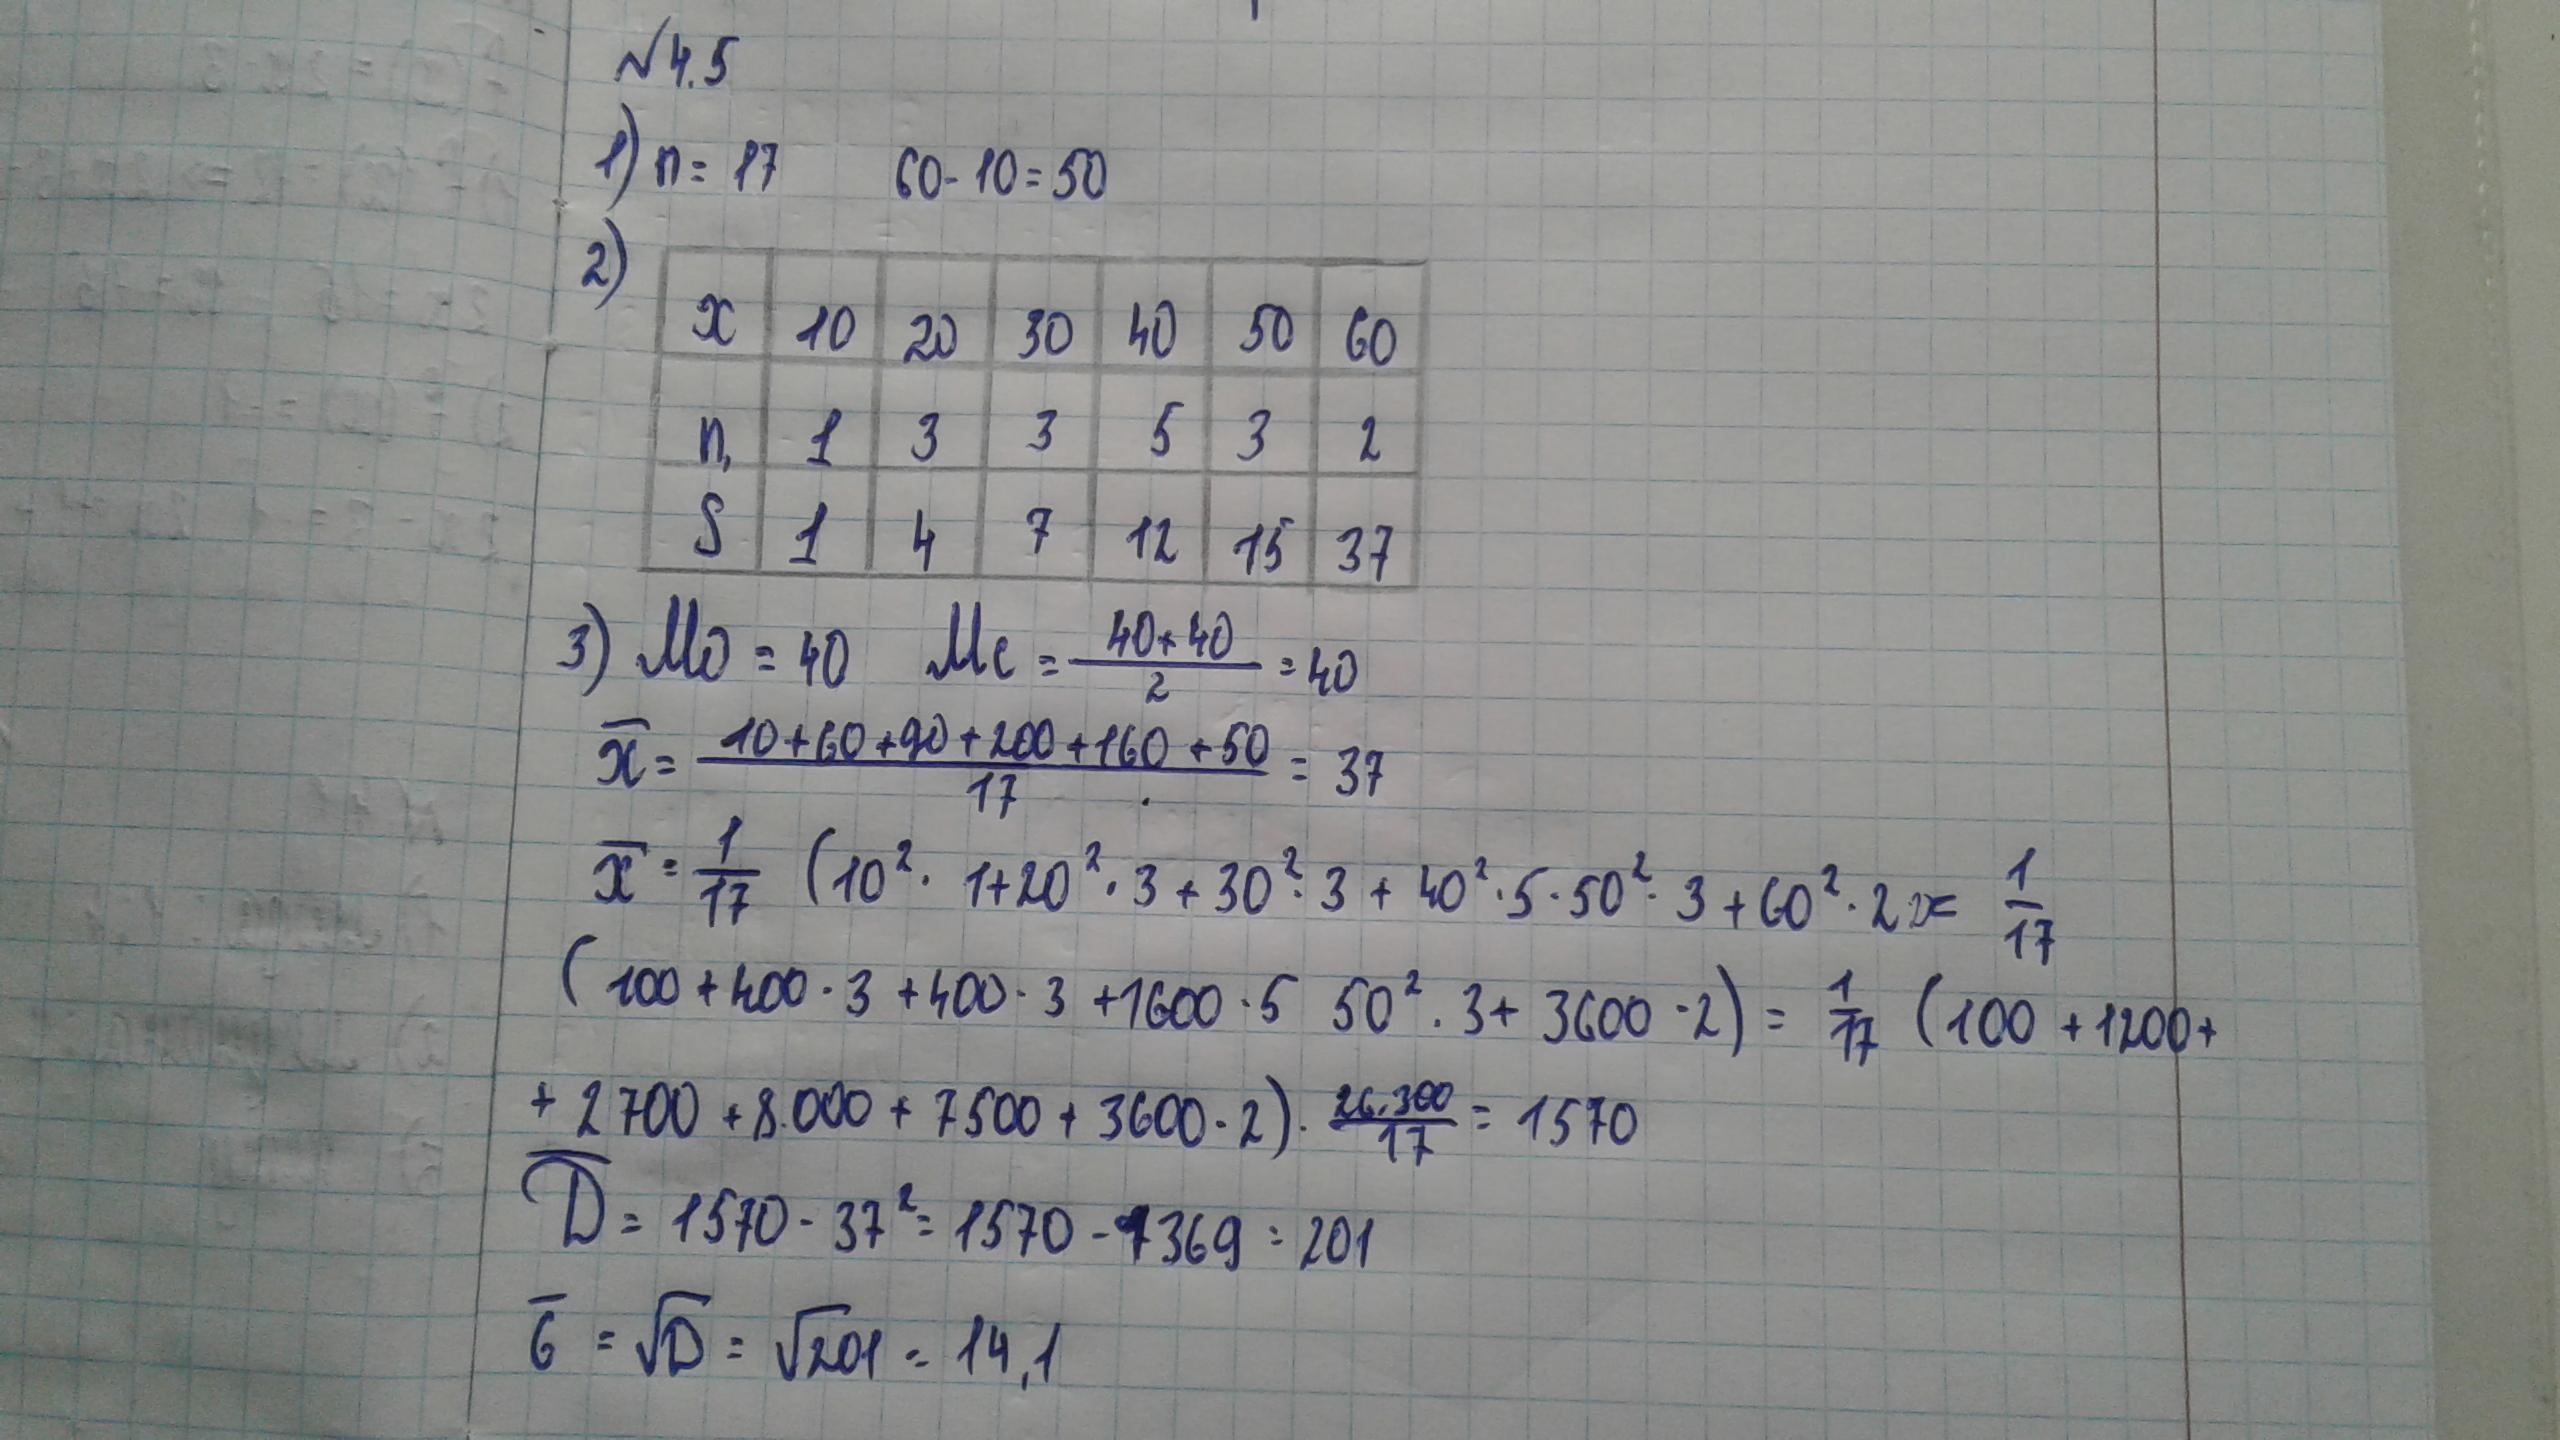 №4.5
1) n = 17 60 - 10 = 50
2)
x 10 20 30 40 50 60
n, 1 3 3 5 3 2
S 1 4 7 12 15 37
3) Mo = 40 Me = (40+40)/2 = 40
x̅ = (10+60+90+200+160+50)/17 = 37
x̅ = 1/17 (10² · 1+20² · 3 + 30² · 3 + 40² · 5 · 50² · 3 + 60² · 2) = 1/17
(100 + 400 · 3 + 400 · 3 + 1600 · 5 50² · 3 + 3600 · 2) = 1/17 (100 + 1200 +
+ 2700 + 8.000 + 7500 + 3600 · 2) · 26.300/17 = 1570
D̅ = 1570 - 37² = 1570 - 1369 = 201
б̅ = √D = √201 = 14,1